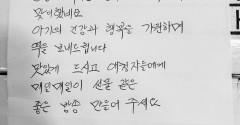 맞이했네요
아기의 건강과 행복을 기원하며
떡을 보내드립니다
맛있게 드시고 애청자들에게
매일매일이 선물 같은
좋은 방송 만들어 주세요